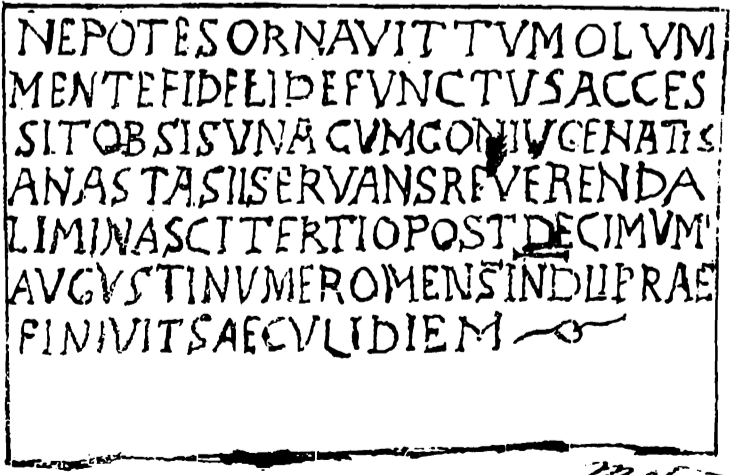 NEPOTESORNAVITTVMOLVM
MENTEFIDELIDEFVNCTVSACCES
SITOBSISVNACVMCONIVGENATIS
ANASTASIISERVANSREVERENDA
LIMINASCITERTIOPOSTDECIMVM
AVGVSTINVMEROMENSINDIIPRAE
FINIVITSAECVLIDIEM